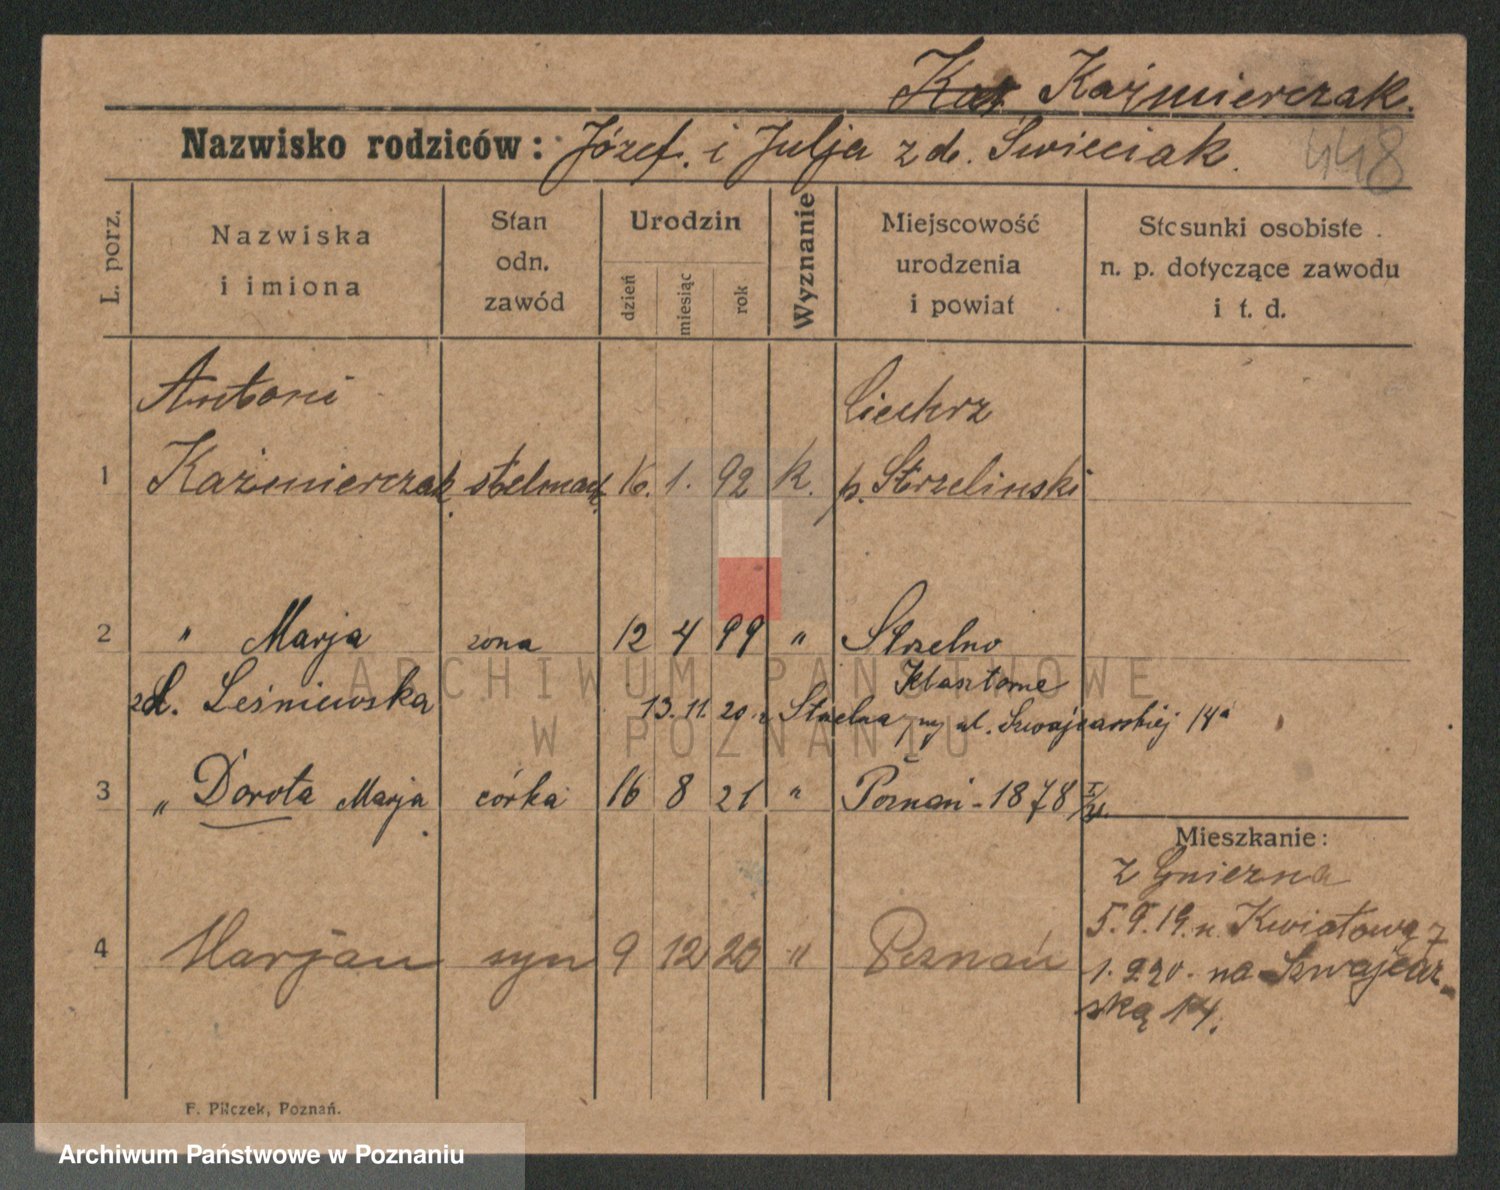 Kaź Kaźmierczak.
Nazwisko rodziców: Józef. i Julja z d. Świeciak.
448
L. porz.
Nazwiska i imiona
Stan odn. zawód
Urodzin
dzień
miesiąc
rok
Wyznanie
Miejscowość urodzenia i powiat
Stosunki osobiste n. p. dotyczące zawodu i t. d.
Antoni Ciechrz
1 Kaźmierczak stelmach 16. 1. 92 k. p. Strzelinski
2 " Marja żona 12 4 99 " Strzelno
zd. Leśniewska Klasztorne
13.11.20 z Strzelna przy ul. Szwajcarskiej 14a
3 " Dorota Marja córka 16 8 21 " Poznań - 1878
Mieszkanie:
z Gniezna
5.9.19. n. Kwiatową 7
4 Marjan syn 9 12 23 " Poznań
1. 9 20. na Szwajcar-
ską 14.
F. Pilczek, Poznań.
ARCHIWUM PAŃSTWOWE
W POZNANIU
Archiwum Państwowe w Poznaniu